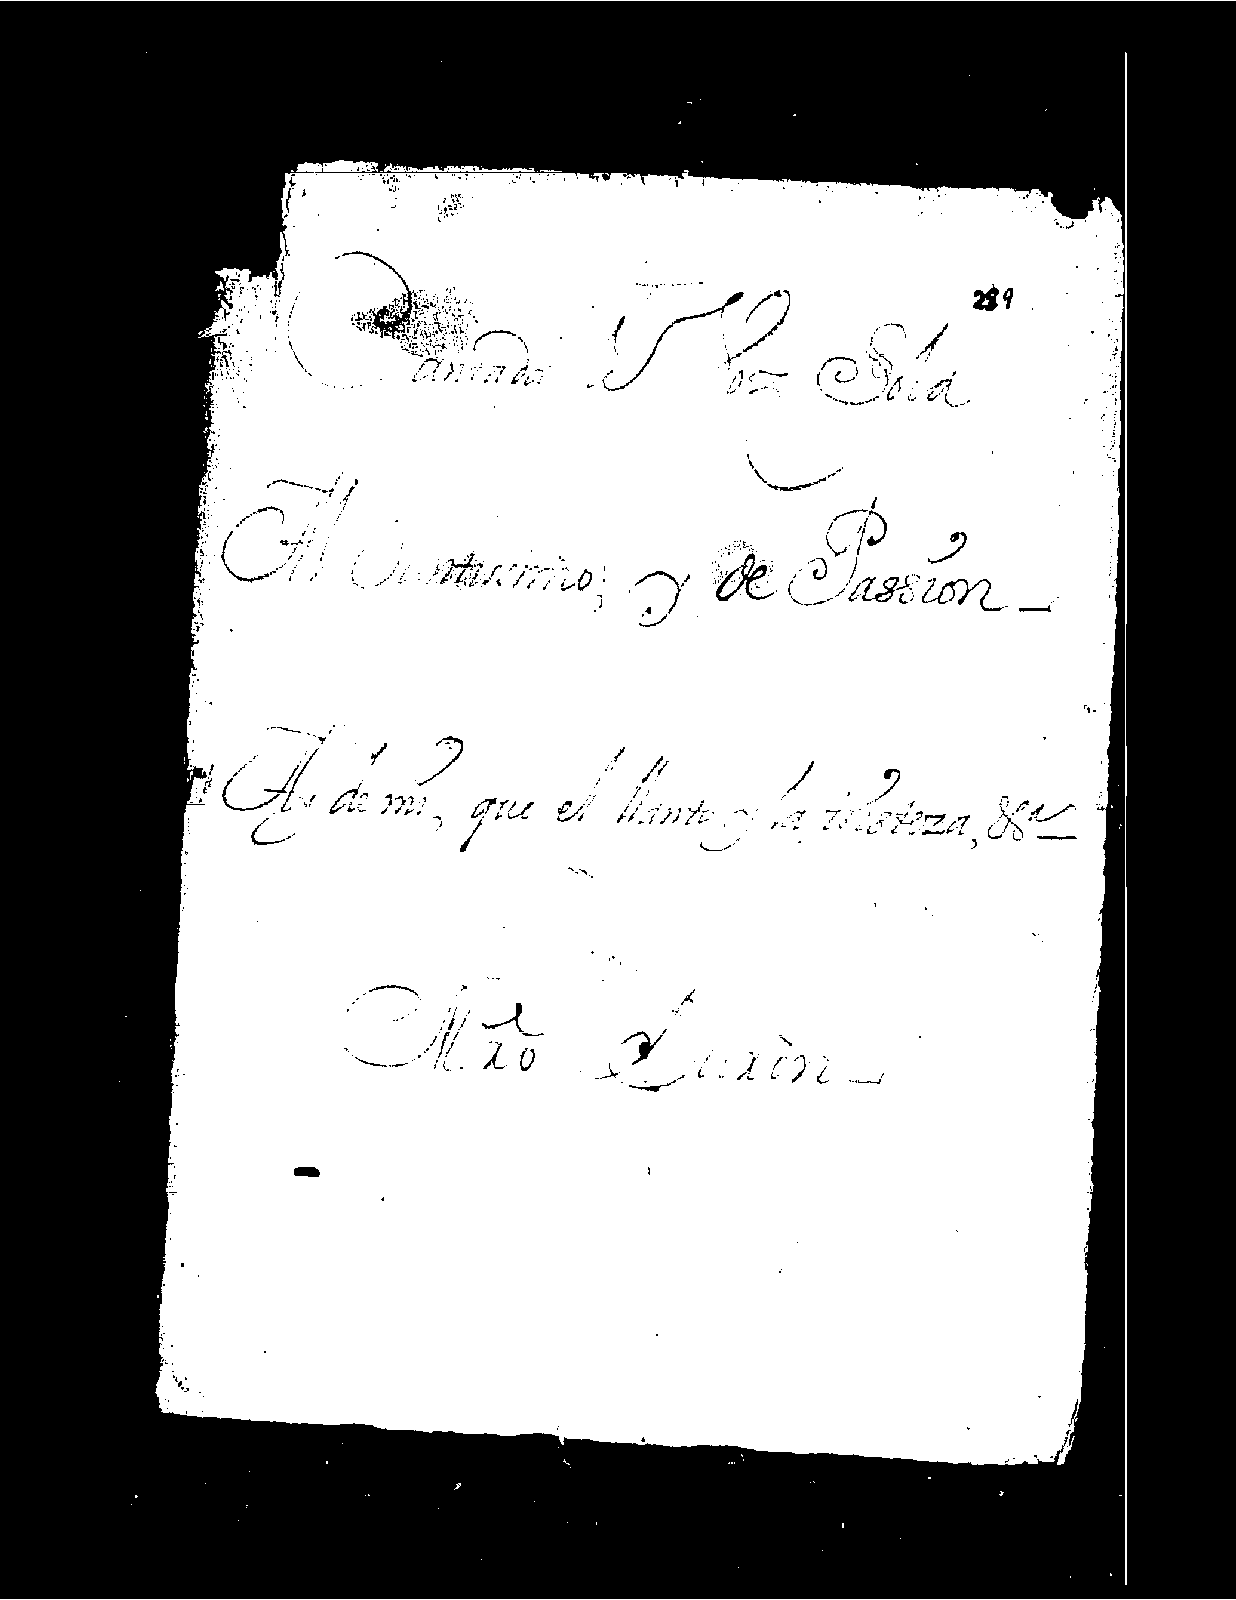 289
Cantada â Voz Sola
Al Santissimo, y de Passion
Ay de mi, que el llanto y la tristeza, &a
M.ro Durón